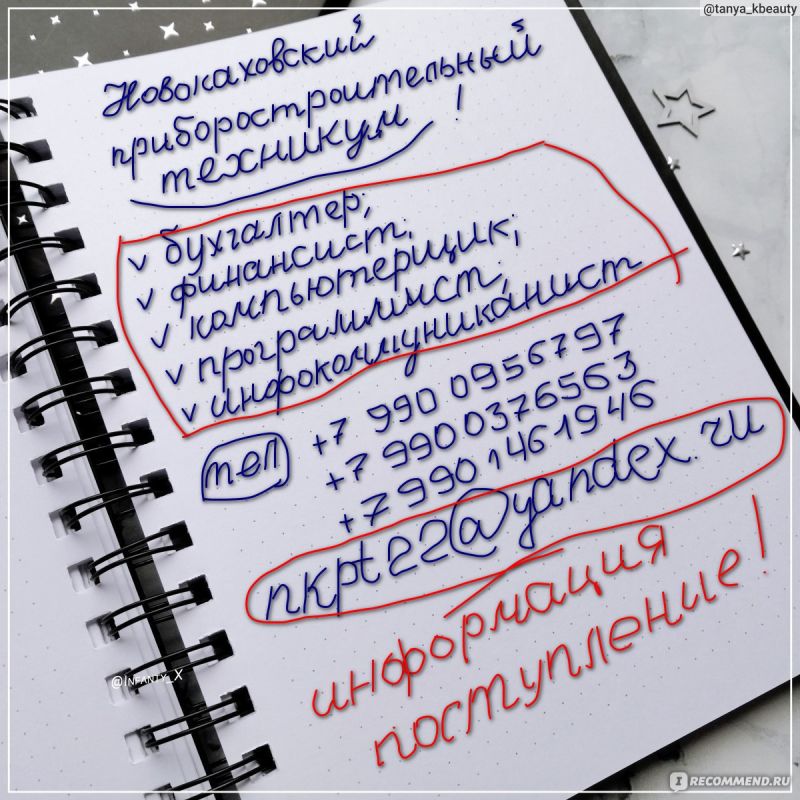 @tanya_kbeauty
Новокаховский
приборостроительный
техникум !
v бухгалтер;
v финансист;
v компьютерщик;
v программист;
v инфокоммуниканист
тел
+7 990 0956797
+7 990 0376563
+7 990 1461946
nkpt22@yandex.ru
информация
поступление!
@INFANTY_X
I RECOMMEND.RU